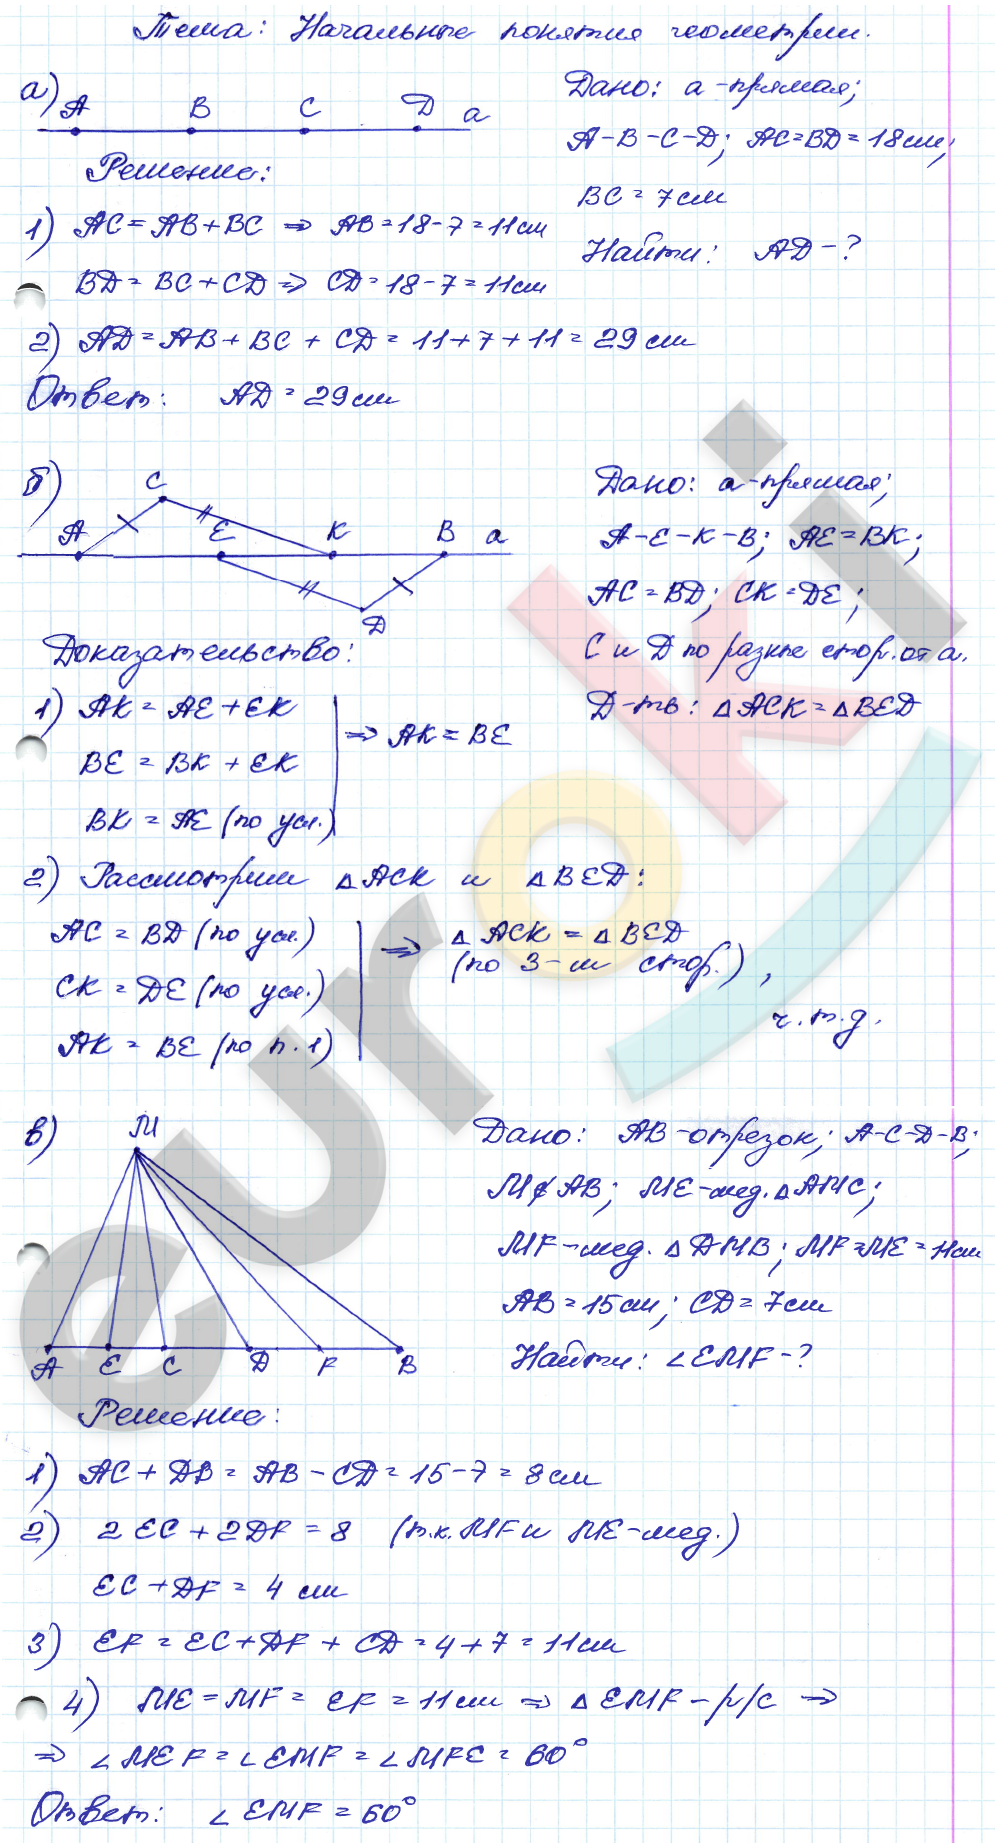 Тема: Начальные понятия геометрии.
а) A B C D a
Дано: a - прямая;
A-B-C-D; AC=BD=18см;
BC=7см
Найти: AD-?
Решение:
1) AC=AB+BC ⇒ AB=18-7=11см
BD=BC+CD ⇒ CD=18-7=11см
2) AD=AB+BC+CD=11+7+11=29см
Ответ: AD=29см
б) C A E K B a D
Дано: a-прямая;
A-E-K-B; AE=BK;
AC=BD; CK=DE;
C и D по разные стор. от a.
Д-ть: △ACK=△BED
Доказательство:
1) AK=AE+EK
BE=BK+EK
BK=AE (по усл.)
⇒ AK=BE
2) Рассмотрим △ACK и △BED:
AC=BD (по усл.)
CK=DE (по усл.)
AK=BE (по п.1)
⇒ △ACK=△BED
(по 3-м стор.),
ч.т.д.
в) M A E C D F B
Дано: AB-отрезок; A-C-D-B;
M∉AB; ME-мед. △AMC;
MF-мед. △DMB; MF=ME=11см
AB=15см; CD=7см
Найти: ∠EMF-?
Решение:
1) AC+DB=AB-CD=15-7=8см
2) 2EC+2DF=8 (т.к. MF и ME-мед.)
EC+DF=4 см
3) EF=EC+DF+CD=4+7=11см
4) ME=MF=EF=11см ⇒ △EMF-р/с ⇒
⇒ ∠MEF=∠EMF=∠MFE=60°
Ответ: ∠EMF=60°
euroki